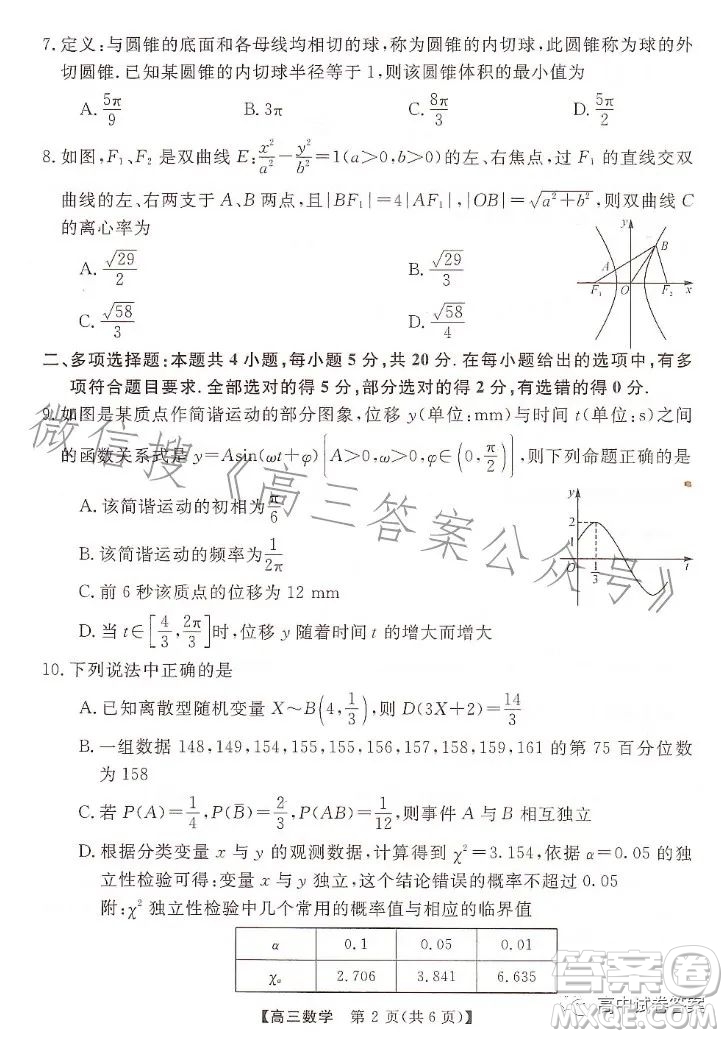 7. 定义:与圆锥的底面和各母线均相切的球,称为圆锥的内切球,此圆锥称为球的外
切圆锥.已知某圆锥的内切球半径等于1,则该圆锥体积的最小值为
A. 5π/9 B. 3π C. 8π/3 D. 5π/2
8. 如图,F₁、F₂ 是双曲线 E: x²/a² − y²/b² =1(a>0,b>0)的左、右焦点,过 F₁ 的直线交双
曲线的左、右两支于 A、B 两点,且|BF₁|=4|AF₁|,|OB|=√(a²+b²),则双曲线 C
的离心率为
A. √29/2 B. √29/3
C. √58/3 D. √58/4
y
A
B
F₁
O
F₂
x
二、多项选择题:本题共 4 小题,每小题 5 分,共 20 分.在每小题给出的选项中,有多
项符合题目要求.全部选对的得 5 分,部分选对的得 2 分,有选错的得 0 分.
9. 如图是某质点作简谐运动的部分图象,位移 y(单位:mm)与时间 t(单位:s)之间
的函数关系式是 y=Asin(ωt+φ)(A>0,ω>0,φ∈(0,π/2)),则下列命题正确的是
A. 该简谐运动的初相为π/6
B. 该简谐运动的频率为1/2π
C. 前 6 秒该质点的位移为 12 mm
D. 当 t∈[4/3,2π/3]时,位移 y 随着时间 t 的增大而增大
y
2
1
O
π/3
t
10. 下列说法中正确的是
A. 已知离散型随机变量 X~B(4,1/3),则 D(3X+2)=14/3
B. 一组数据 148,149,154,155,155,156,157,158,159,161 的第 75 百分位数
为 158
C. 若 P(A)=1/4,P(B̄)=2/3,P(AB)=1/12,则事件 A 与 B 相互独立
D. 根据分类变量 x 与 y 的观测数据,计算得到 χ²=3.154,依据 α=0.05 的独
立性检验可得:变量 x 与 y 独立,这个结论错误的概率不超过 0.05
附:χ² 独立性检验中几个常用的概率值与相应的临界值
α 0.1 0.05 0.01
χα 2.706 3.841 6.635
【高三数学 第 2 页(共 6 页)】
微信搜《高三答案公众号》
高中试卷答案
答案圈
MXQE.COM